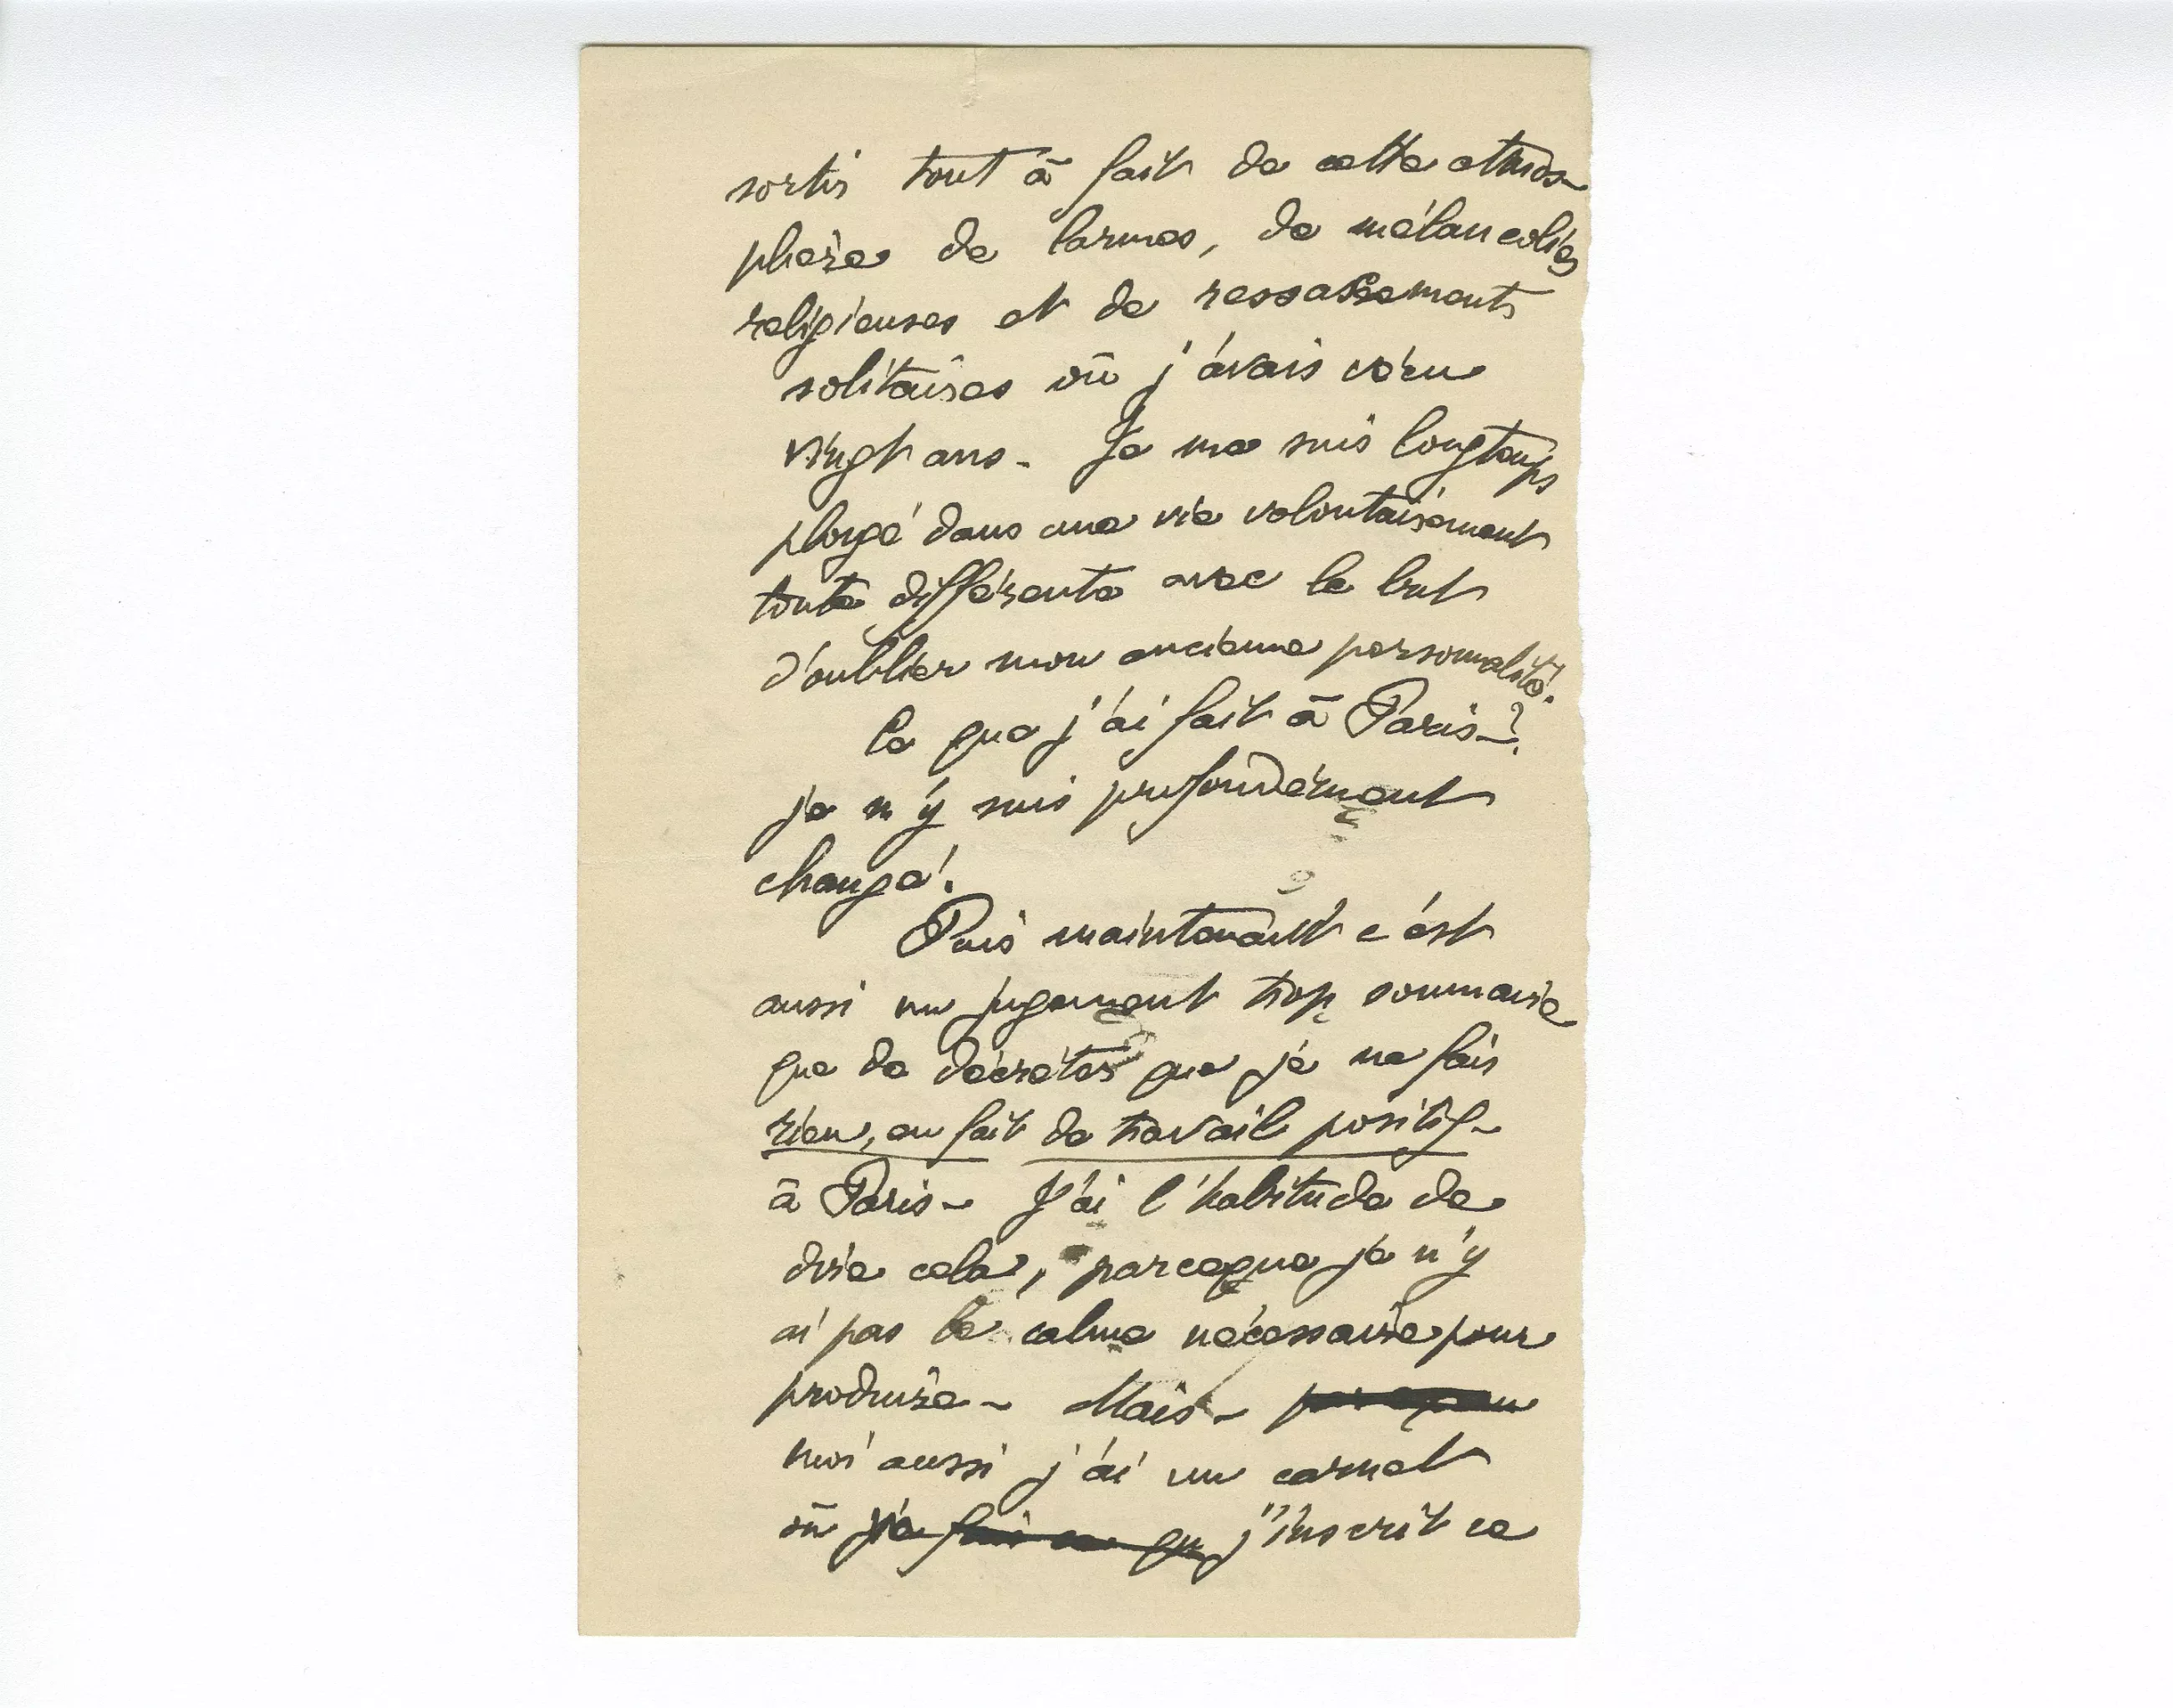 sortir tout à fait de cette atmos-
phère de larmes, de mélancolies
religieuses et de ressassements
solitaires où j'avais vécu
vingt ans - Je me suis longtemps
plongé dans une vie volontairement
toute différente avec le but
d'oublier mon ancienne personnalité.
Ce que j'ai fait à Paris - ?
je m'y suis profondément
changé.
Puis maintenant c'est
aussi un jugement trop sommaire
que de décréter que je ne fais
rien, en fait de travail positif -
à Paris - J'ai l'habitude de
dire cela, parceque je n'y
ai pas le calme nécessaire pour
produire - Mais -
moi aussi j'ai un carnet
où j'inscrit ce